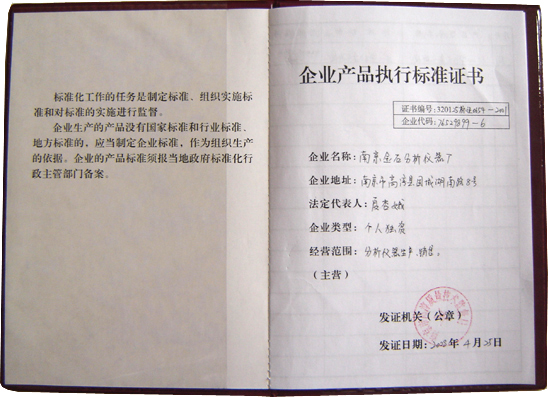 标准化工作的任务是制定标准、组织实施标
准和对标准的实施进行监督。
企业生产的产品没有国家标准和行业标准、
地方标准的，应当制定企业标准，作为组织生产
的依据。企业的产品标准须报当地政府标准化行
政主管部门备案。
企业产品执行标准证书
证书编号：3201
企业代码：
企业名称：南京金石分析仪器厂
企业地址：南京市高淳县固城湖南路8号
法定代表人：
企业类型：个人独资
经营范围：分析仪器生产、销售。
（主营）
发证机关（公章）
发证日期：年4月25日